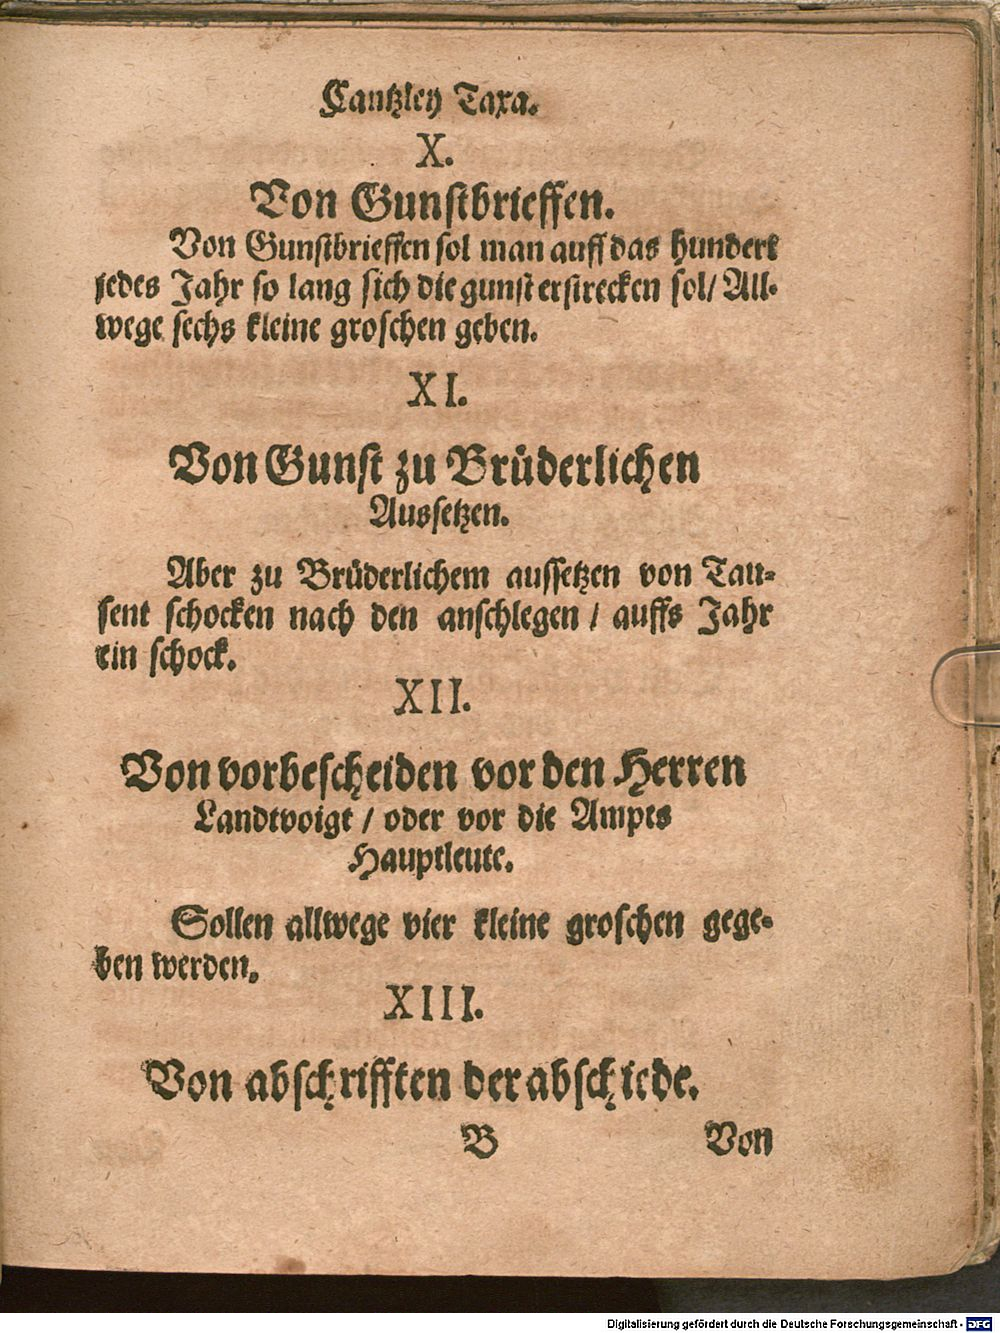 Cantzley Taxa.
X.
Von Gunstbrieffen.
Von Gunstbrieffen sol man auff das hundert
jedes Jahr so lang sich die gunst erstrecken sol/ All-
wege sechs kleine groschen geben.
XI.
Von Gunst zu Brüderlichen
Aussetzen.
Aber zu Brüderlichem aussetzen von Tau-
sent schocken nach den anschlegen / auffs Jahr
ein schock.
XII.
Von vorbescheiden vor den Herren
Landtvoigt / oder vor die Ampts
Hauptleute.
Sollen allwege vier kleine groschen gege-
ben werden.
XIII.
Von abschrifften der abschiede.
B Von
Digitalisierung gefördert durch die Deutsche Forschungsgemeinschaft - DFG